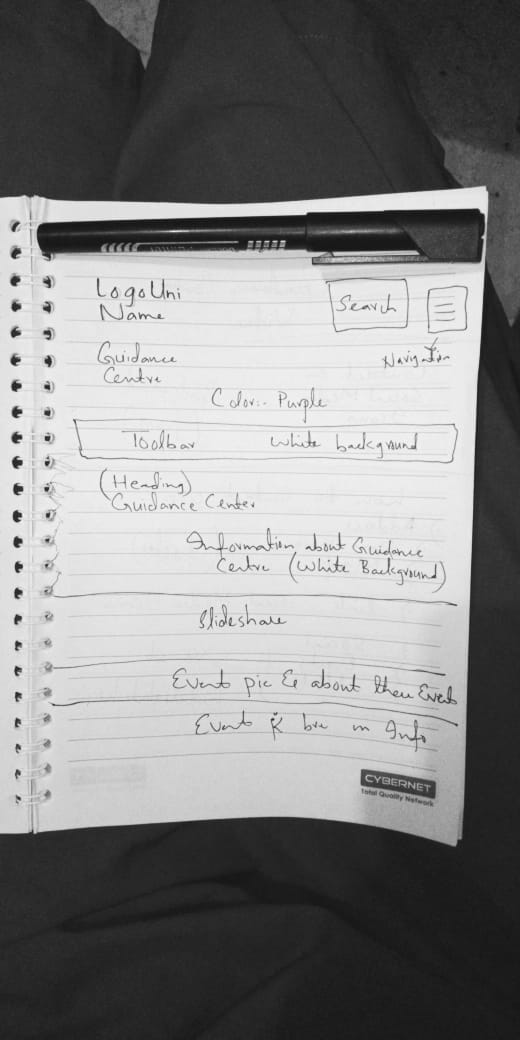 Logo Uni
Name
Search
Navigation
Guidance
Centre
Color:- Purple
Toolbar
White background
(Heading)
Guidance Center
Information about Guidance
Centre (White Background)
Slideshare
Event pic & about then Event
Event K in Info
CYBERNET
Total Quality Network